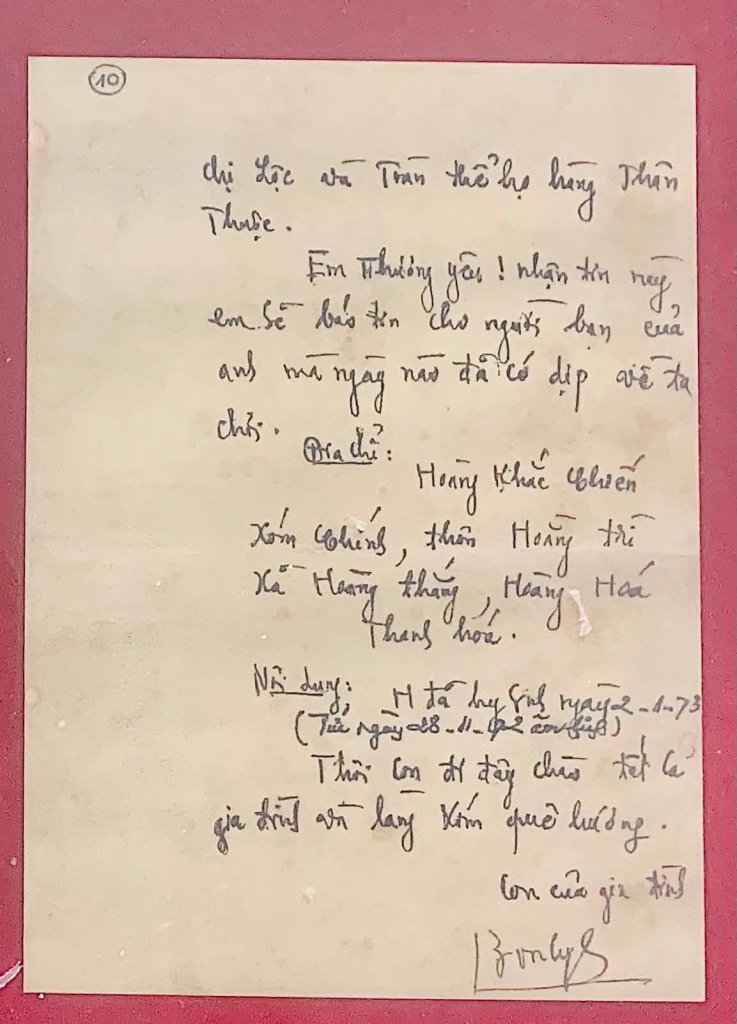 10
chị Lộc và Toàn thể họ hàng Thân
Thuộc.
Em Thương yêu! nhận tin này
em sẽ báo tin cho người bạn của
anh mà ngày nào đã có dịp về ta
chơi.
Địa chỉ:
Hoàng Khắc Chiến
Xóm Chính, thôn Hoằng trì
Xã Hoằng thắng, Hoằng Hoá
Thanh hóá.
Nội dung: H đã hy sinh ngày 2-1-73
(Tức ngày 28-11-72 âm lịch)
Thôi con đi đây chào tất cả
gia đình và làng xóm quê hương.
Con của gia đình